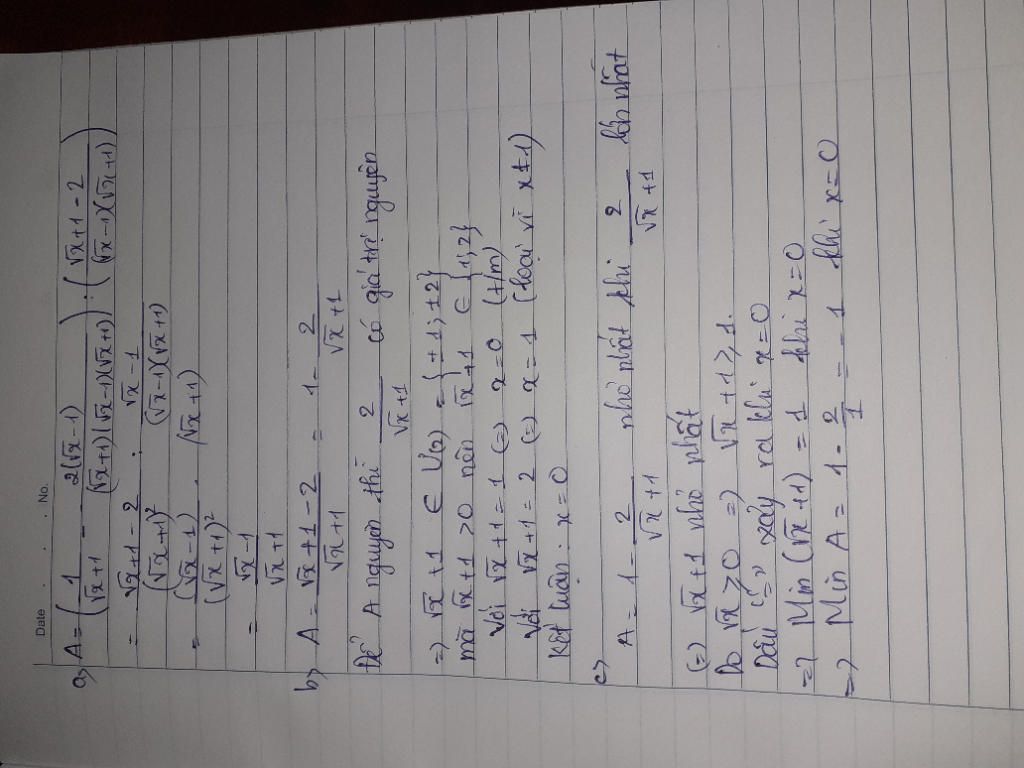 Date . . No.
a) A = (1/(√x+1) - 2(√x-1)/((√x+1)(√x-1)(√x+1))) : ((√x+1-2)/((√x-1)(√x+1)))
= (√x+1-2)/(√x+1)² : (√x-1)/((√x-1)(√x+1))
= (√x-1)/(√x+1)² . (√x+1)
= (√x-1)/(√x+1)
b) A = (√x+1-2)/(√x+1) = 1 - 2/(√x+1)
Để A nguyên thì 2/(√x+1) có giá trị nguyên
=) √x+1 ∈ Ư(2) = {±1; ±2}
mà √x+1 > 0 nên √x+1 ∈ {1; 2}
Với √x+1 = 1 (=) x=0 (t/m)
Với √x+1 = 2 (=) x=1 (loại vì x≠1)
Kết luận: x=0
c) A = 1 - 2/(√x+1) nhỏ nhất khi 2/(√x+1) lớn nhất
(=) √x+1 nhỏ nhất
Do √x ≥ 0 =) √x+1 ≥ 1.
Dấu "=" xảy ra khi x=0
=) Min (√x+1) = 1 khi x=0
=) Min A = 1 - 2/1 = -1 khi x=0